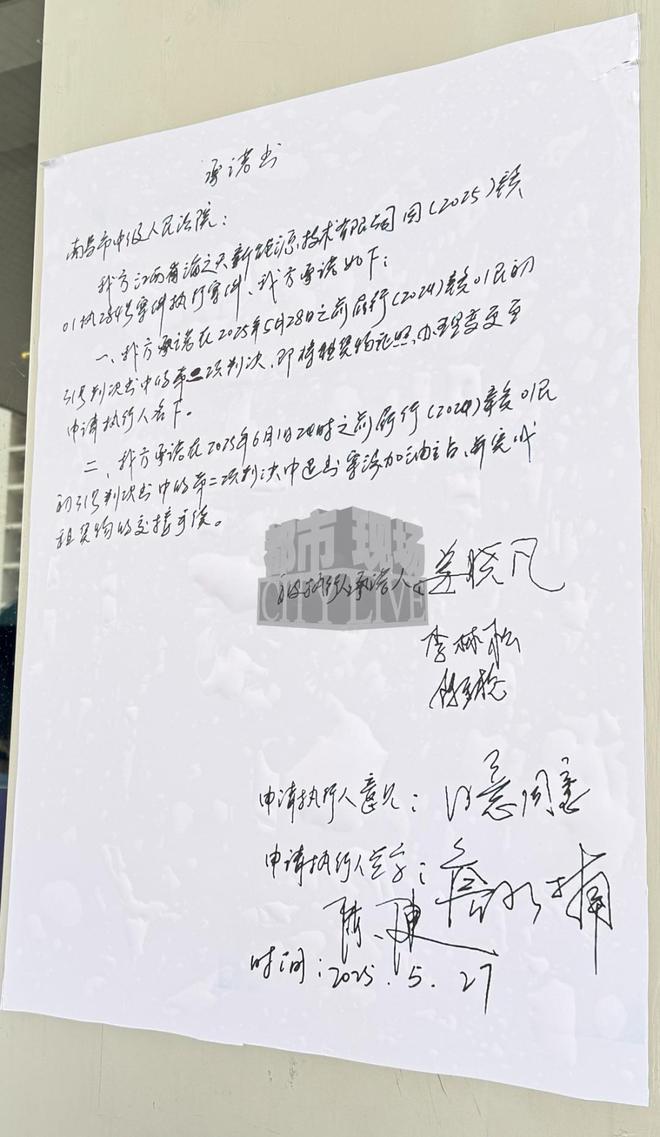 承诺书
南昌市中级人民法院：
我方江西省海之天新能源技术有限公司因（2025）赣
01执284号案件执行案件，我方承诺如下：
一、我方承诺在2025年5月28日之前履行（2024）赣01民初
31号判决书中的第二项判决，即将租赁物证照办理变更至
申请执行人名下。
二、我方承诺在2025年6月1日24时之前履行（2024）赣01民
初31号判决书中的第二项判决中退出 加油站，并完成
租赁物的交接手续。
都市现场
CITY LIVE
被执行人承诺人：晓凡
李林松
申请执行人意见：同意
申请执行人签字：
陈
时间：2025.5.27